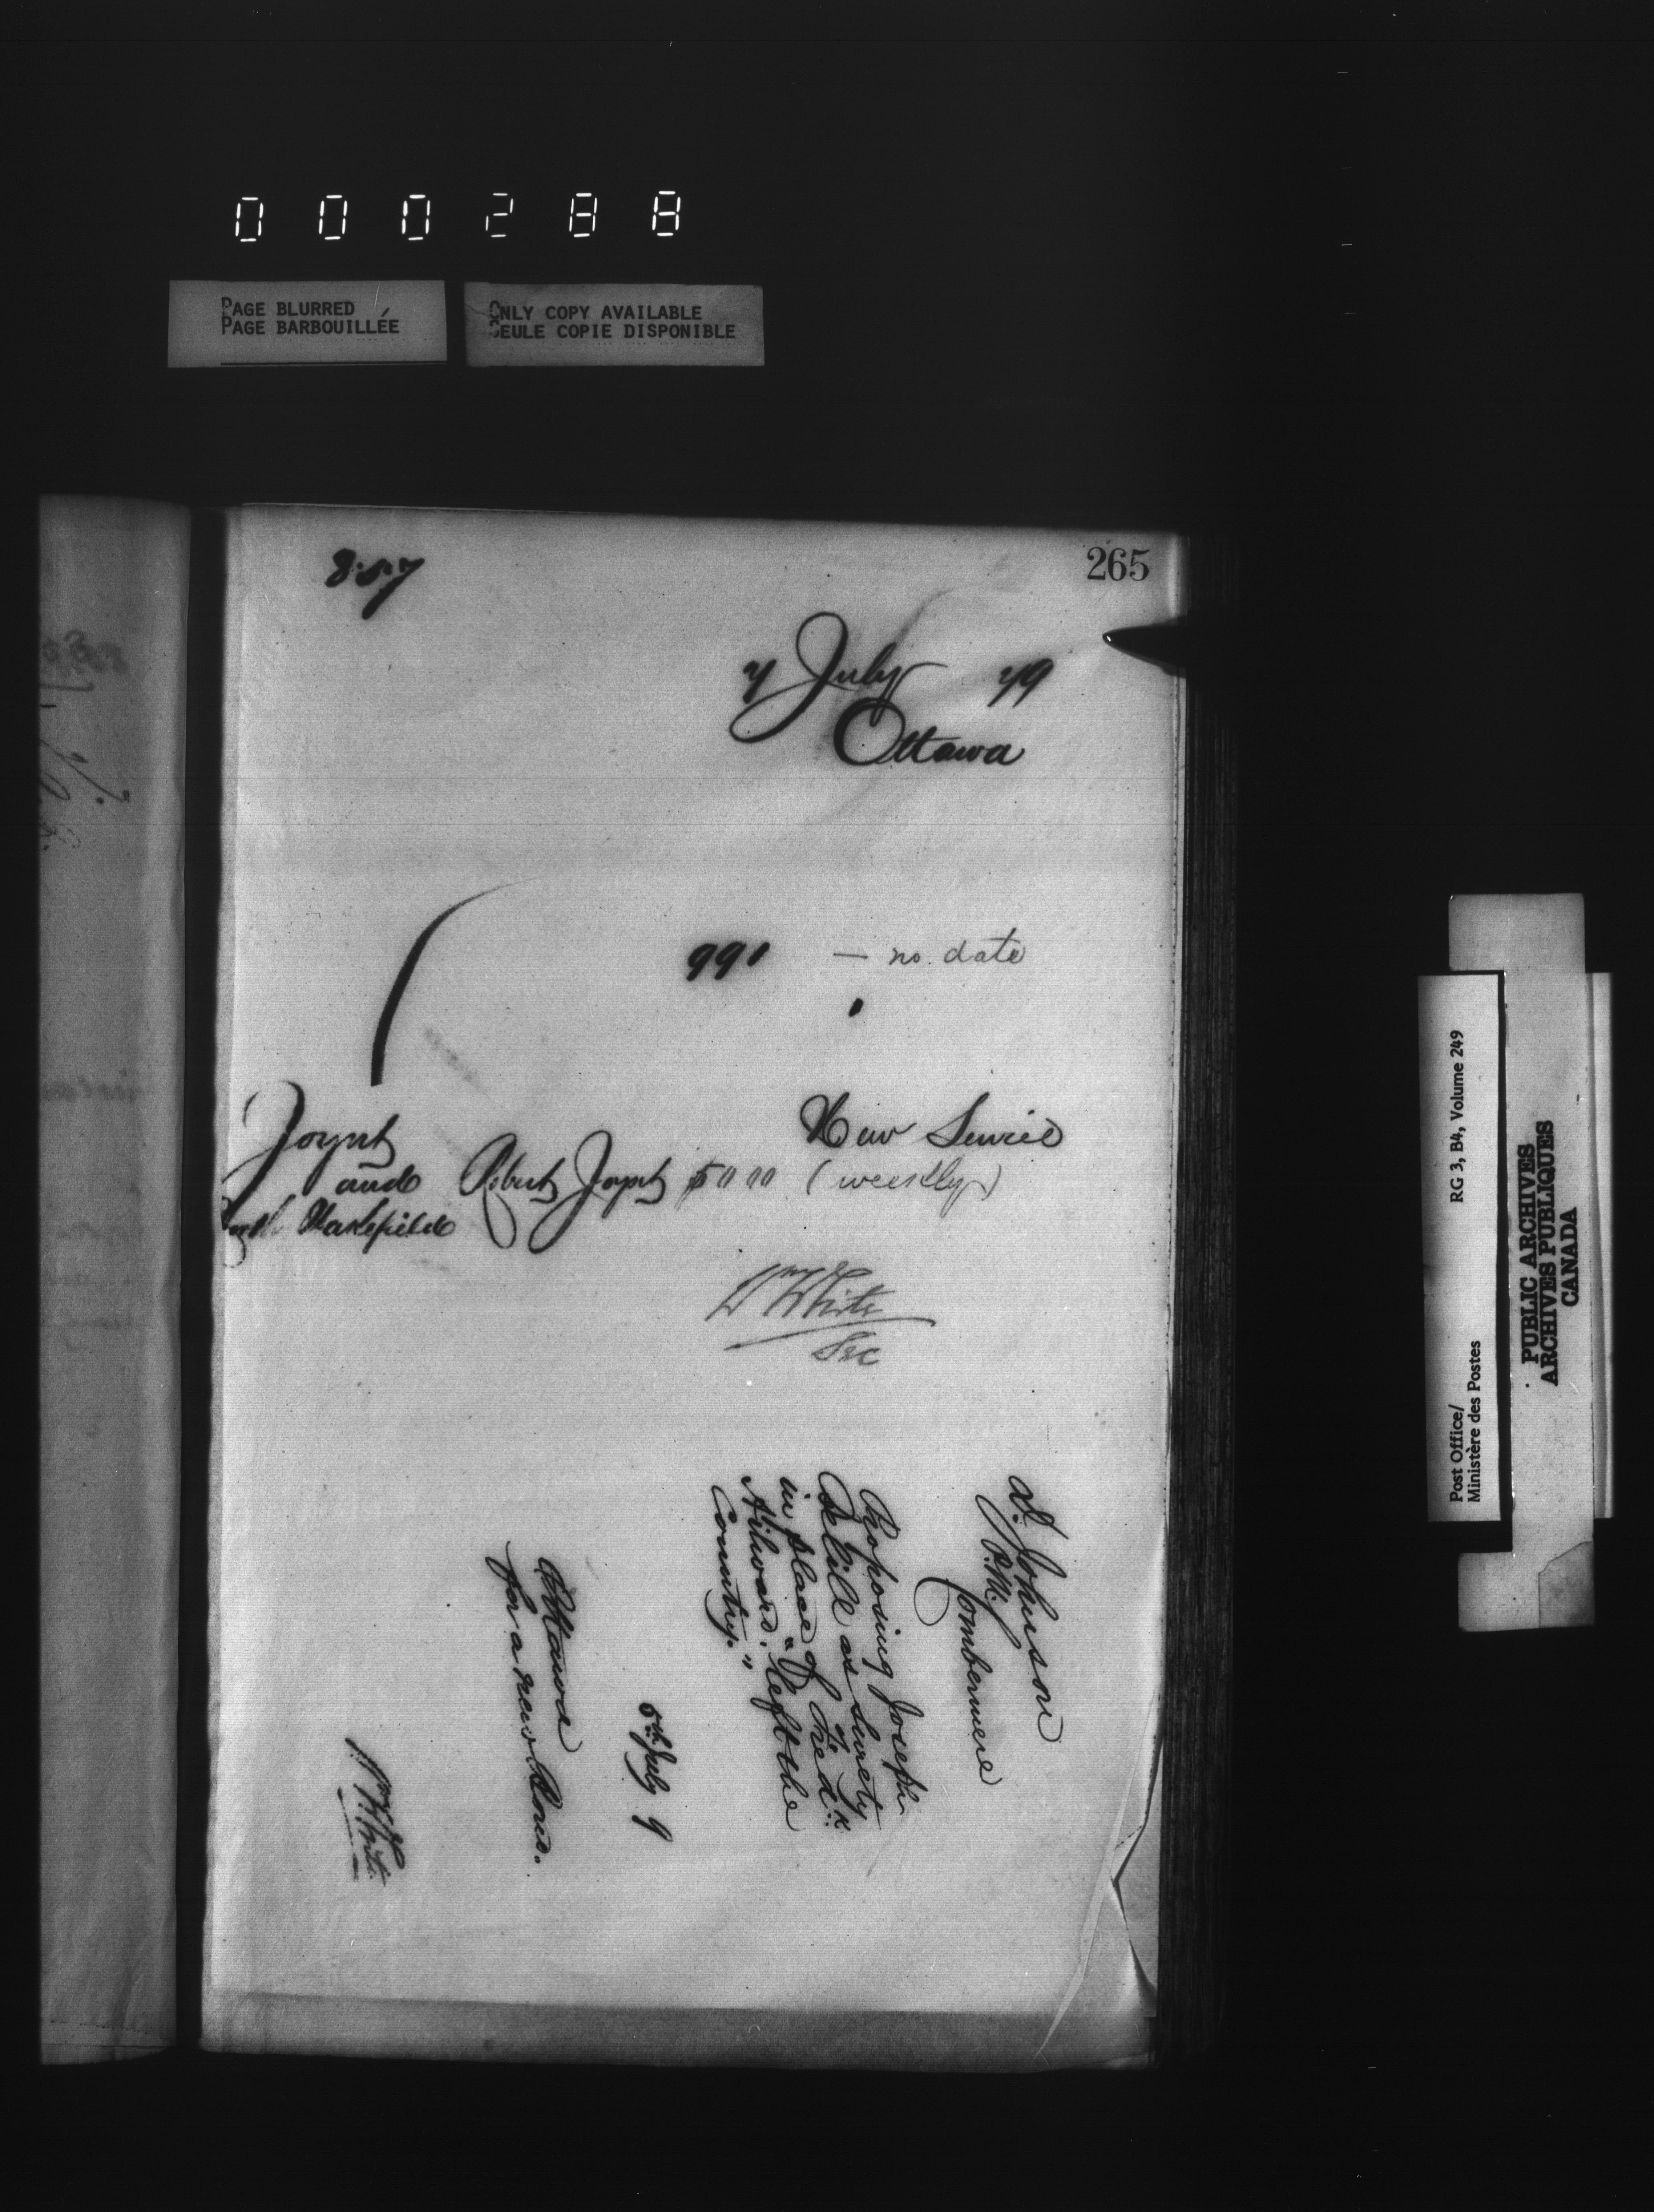 000288
PAGE BLURRED
PAGE BARBOUILLÉE
ONLY COPY AVAILABLE
SEULE COPIE DISPONIBLE
265
857
7 July 79
Ottawa
991 — no date
New Service
Joynt
and Robert Joynt (weekly)
Wakefield
Wm White
Sec
D. Johnson
P.M.
Combermere
Proposing Joseph
Delill as Surety
in place of Fred.
"left the
Country."
5th July 9
Ottawa
for a new Bond.
Wm White
Post Office/
Ministère des Postes
RG 3, B4, Volume 249
PUBLIC ARCHIVES
ARCHIVES PUBLIQUES
CANADA